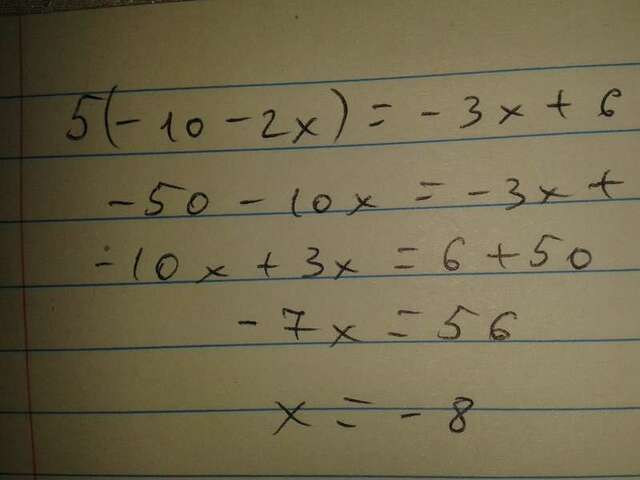 5(-10-2x) = -3x + 6
-50 - 10x = -3x +
-10x + 3x = 6 + 50
-7x = 56
x = -8